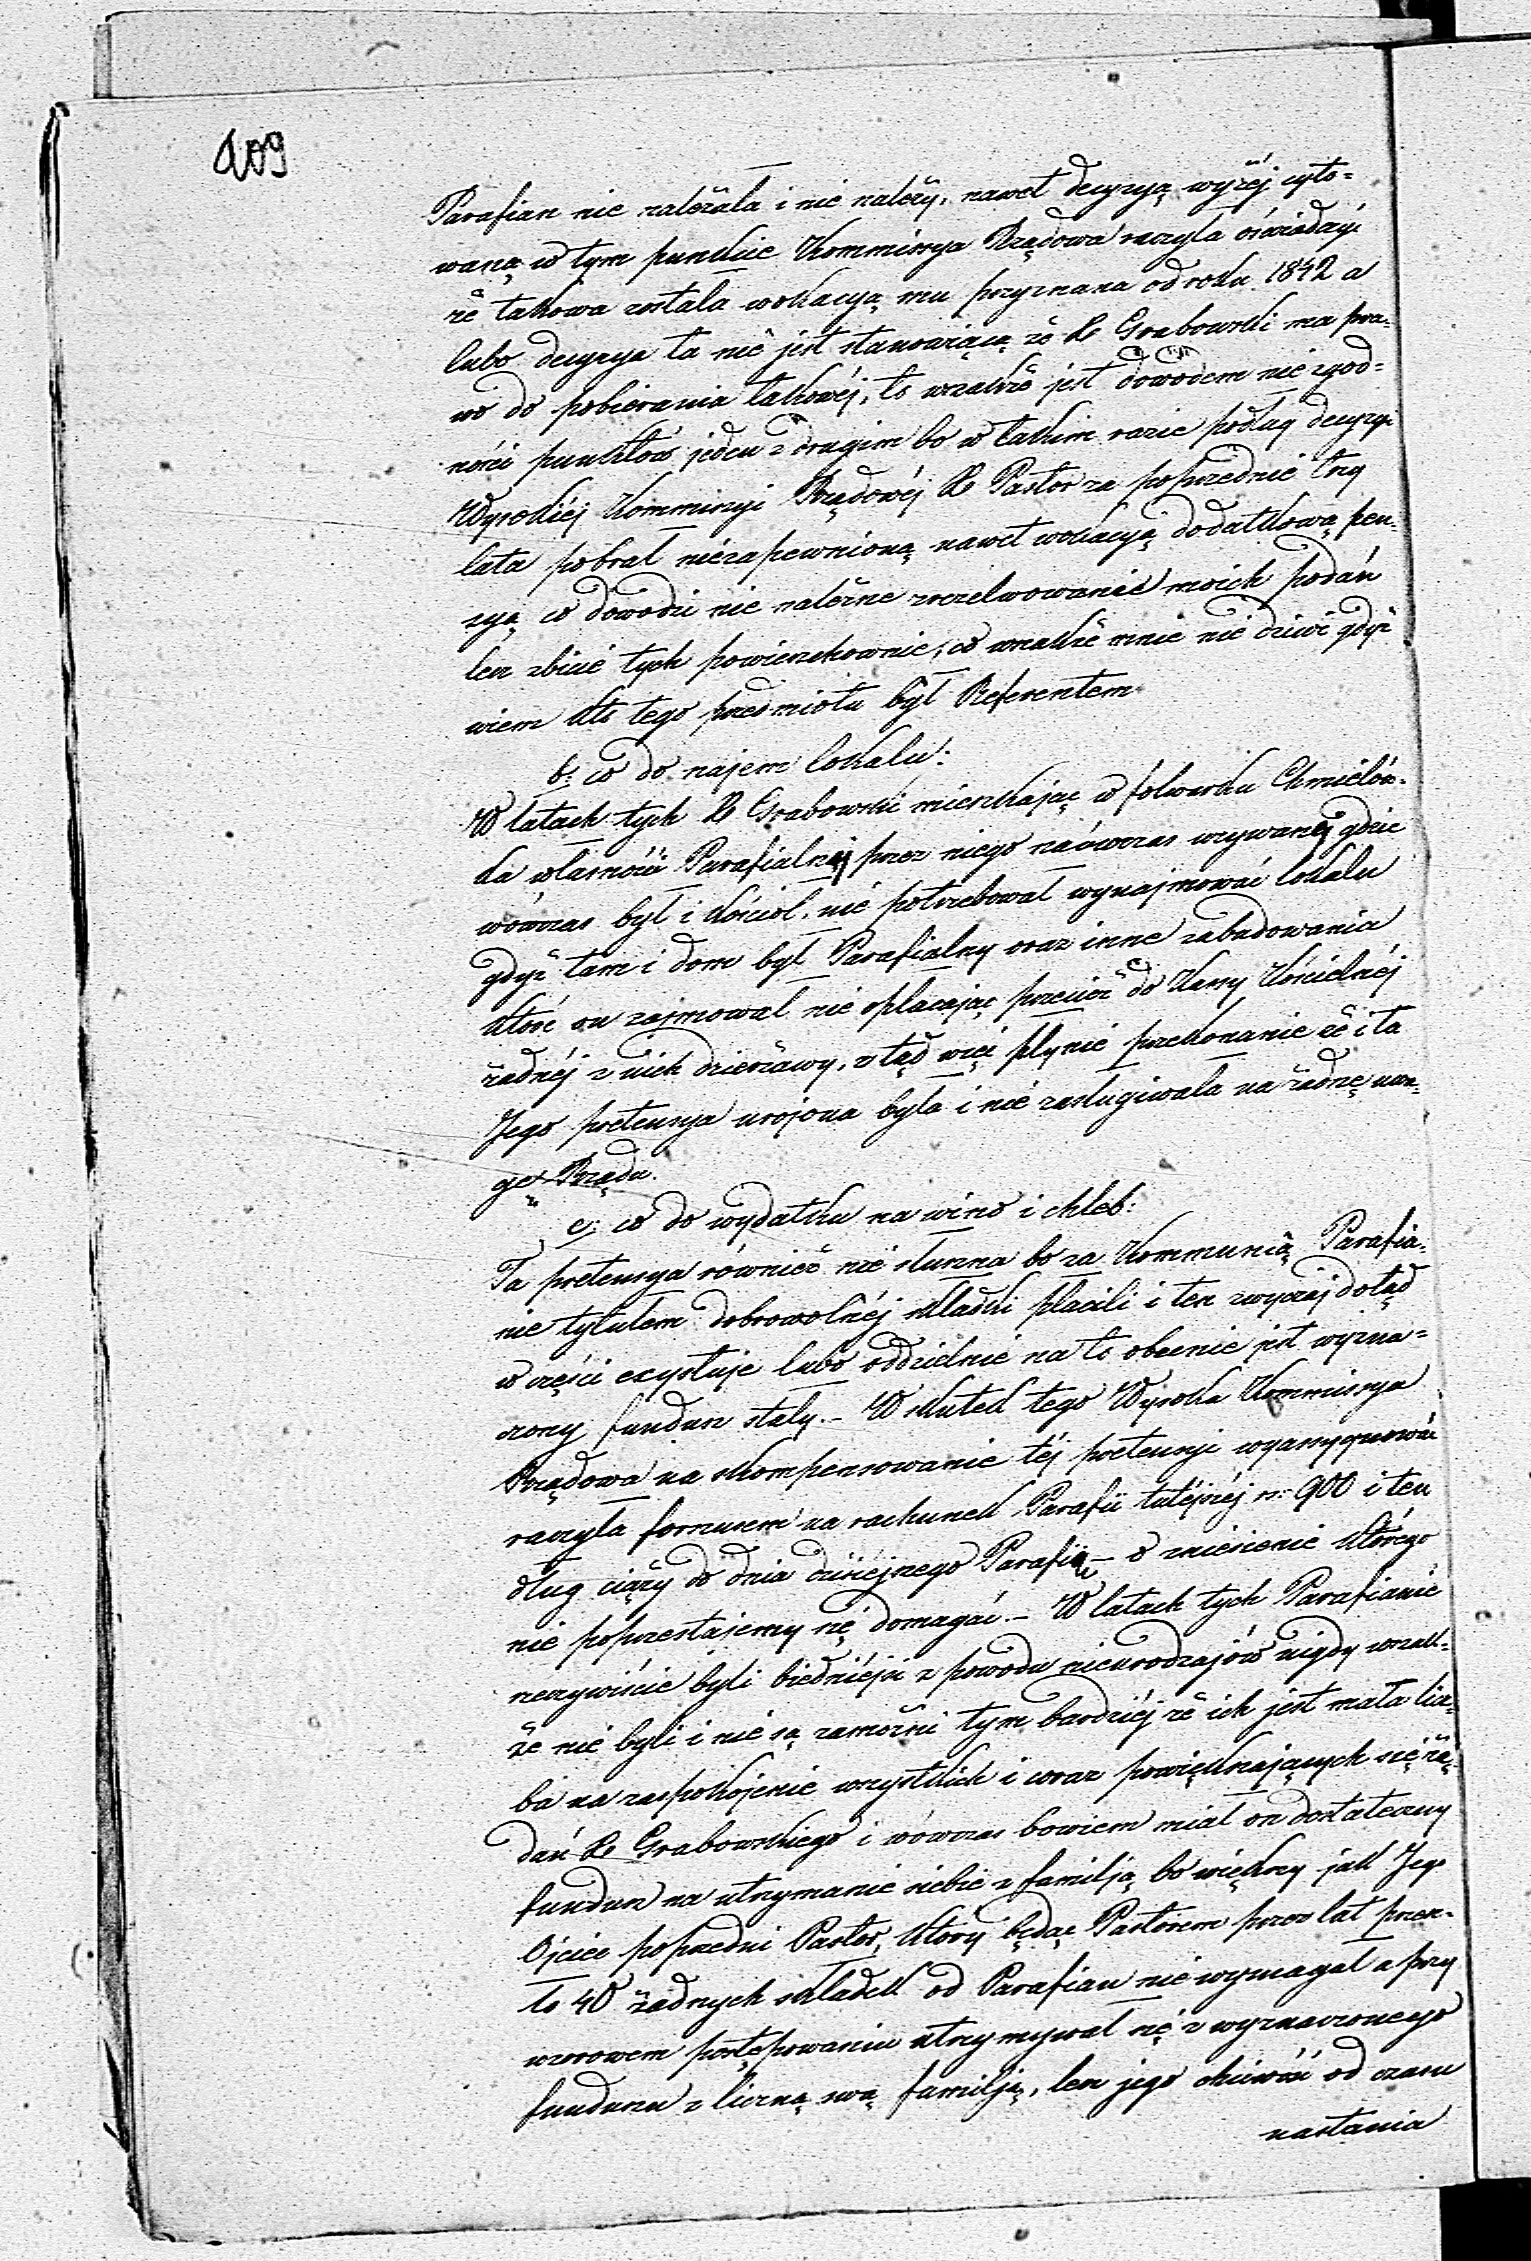 109
Parafian nie należała i nie należy, nawet decyzyą wyżéj cyto=
waną w tym punkcie Kommissya Rządowa raczyła oświadczyć
że takowa została wokacyą mu przyznana od roku 1842 a
lubo decyzya ta nie jest stanowiącą że X Grabowski ma pra=
wo do pobierania takowéj, to wszakże jest dowodem nie zgod=
ności punktów jeden z drugim bo w takim razie podług decyzyi
Wysokiéj Kommissyi Rządowéj X Pastor za poprzednie trzy
lata pobrał niezapewnioną nawet wokacyą dodatkową pen=
syą co dowodzi nie należne zrezelwowanie moich podań
lecz zbicie tych powierzchownie, co wszakże mnie nie dziwi gdyż
wiem kto tego przedmiotu był Referentem
b: co do najem lokalu:
W latach tych X Grabowski mieszkając w folwarku Chmielów=
ka własności Parafialnej przez niego naówczas używanej gdzie
wówczas był i kościoł, nie potrzebował wynajmować lokalu
gdyż tam i dom był Parafialny oraz inne zabudowania
które on zajmował nie opłacając przecież do Kassy Kościelnéj
żadnéj z nich dzierżawy, ztąd więc płynie przekonanie że i ta
Jego pretensya urojona była i nie zasługiwała na żadnę uwa=
gę Rządu.
c: co do wydatku na wino i chleb:
Ta pretensya również nie słuszna bo za Kommunią Parafia=
nie tytułem dobrowolnéj składki płacili i ten zwyczaj dotąd
w części exystuje lubo oddzielnie na to obecnie jest wyzna=
czony fundusz stały. – W skutek tego Wysoka Kommissya
Rządowa na skompensowanie téj pretensyi wyassygnować
raczyła forszusem na rachunek Parafii tutejszéj rs: 900 i ten
dług ciąży do dnia dzisiejszego Parafię – o zniesienie którego
nie poprzestajemy się domagać. – W latach tych Parafianie
rzeczywiście byli biedniéjsi z powodu nieurodzajów nigdy wszak=
że nie byli i nie są zamożni tym bardziéj że ich jest mała licz=
ba na zaspokojenie wszystkich i coraz powiększających się żą=
dań X Grabowskiego i wówczas bowiem miał on dostateczny
fundusz na utrzymanie siebie z familją bo większy jak Jego
Ojciec poprzedni Pastor, który będąc Pastorem przez lat przesz=
to 40 żadnych składek od Parafian nie wymagał a przy
wzorowem postępowaniu utrzymywał się z wyznaczonego
funduszu z liczną swą familją, lecz jego chciwość od czasu
nastania